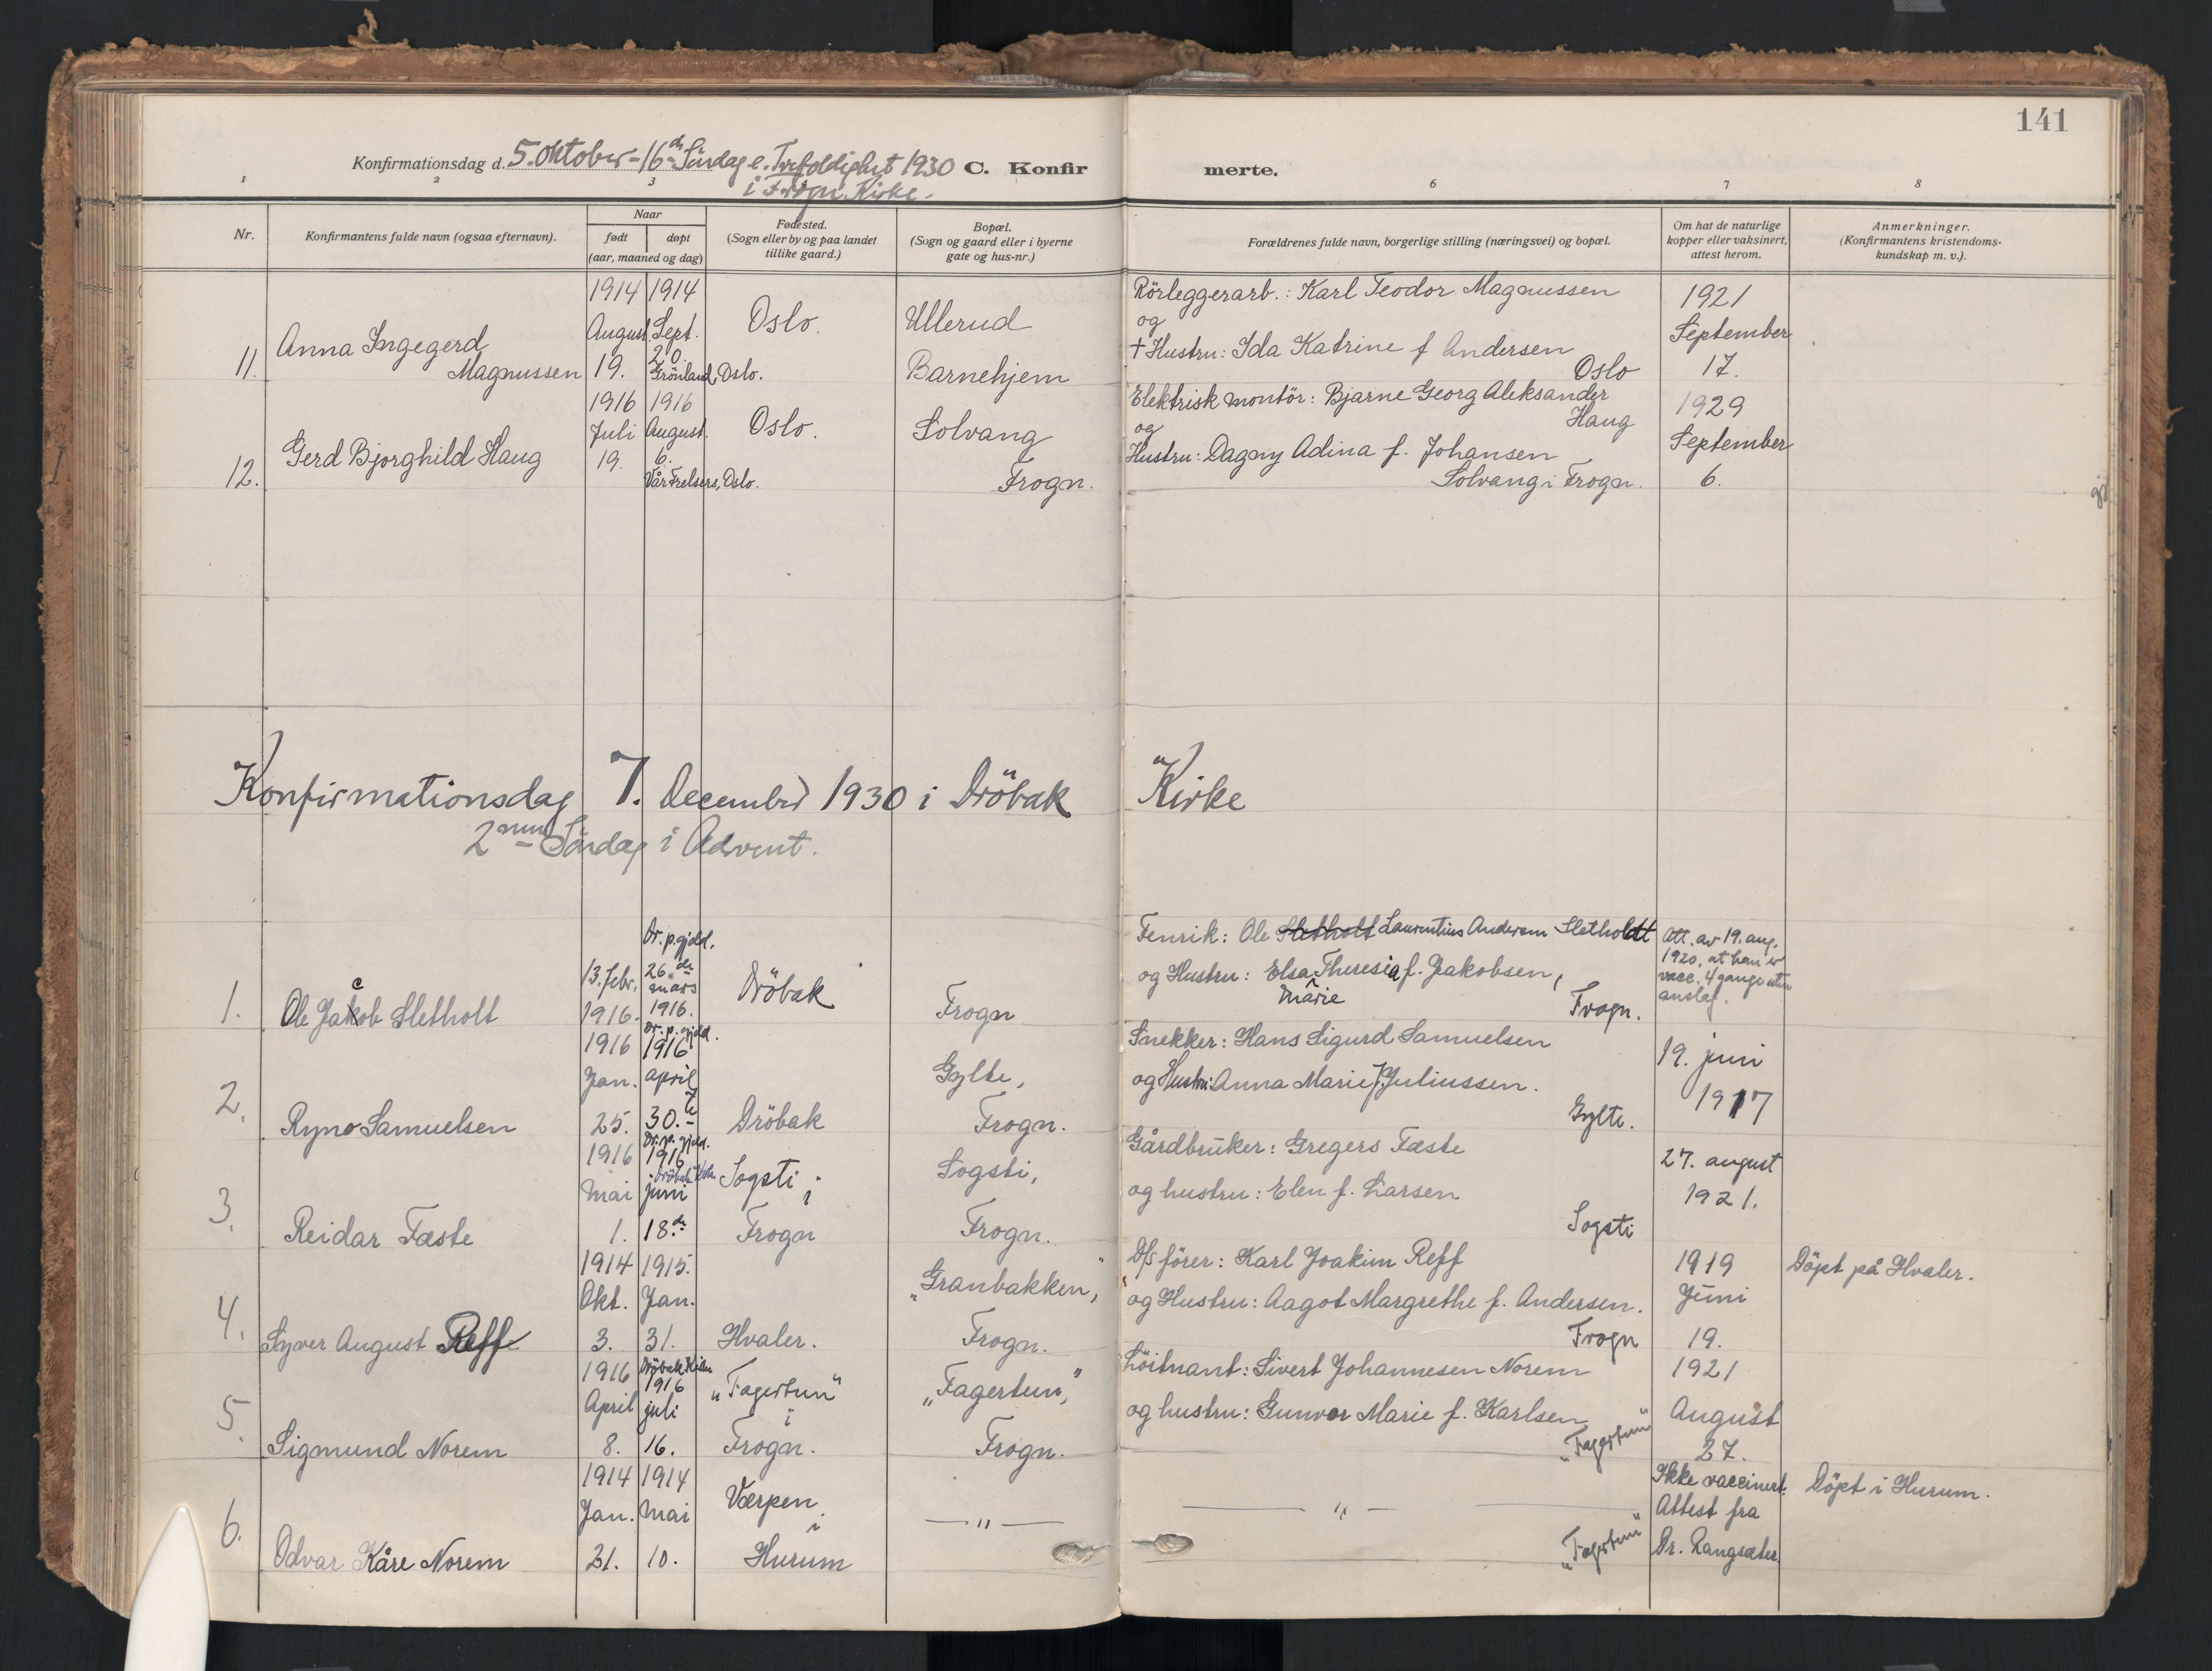 141
Konfirmationsdag d. 5. Oktober - 16de Söndag e. Trefoldighet 1930 C. Konfirmerte.
i Frogn Kirke.
1 2 3 6 7 8
Nr.
Konfirmantens fulde navn (ogsaa efternavn).
Naar
født døpt
(aar, maaned og dag)
Fødested.
(Sogn eller by og paa landet
tillike gaard.)
Bopæl.
(Sogn og gaard eller i byerne
gate og hus-nr.)
Forældrenes fulde navn, borgerlige stilling (næringsvei) og bopæl.
Om hat de naturlige
kopper eller vaksinert,
attest herom.
Anmerkninger.
(Konfirmantens kristendoms-
kundskap m. v.).
11.
Anna Ingegerd
Magnussen
1914
August
19.
1914
Sept.
20.
Grönland, Oslo.
Oslo.
Ullerud
Barnehjem
Rörleggerarb.: Karl Teodor Magnussen
og
† Hustru: Ida Katrine f Andersen
Oslo
1921
September
17.
12.
Gerd Bjorghild Haug
1916
Juli
19.
1916
August.
6.
Vår Frelsers, Oslo.
Oslo.
Solvang
Frogn.
Elektrisk montör: Bjarne Georg Aleksander
Haug
og
Hustru: Dagny Adina f. Johansen
Solvang i Frogn.
1929
September
6.
Konfirmationsdag 7. December 1930 i Dröbak Kirke
2nen Söndag i Advent.
1.
Ole Jakob Sletholt
c
13. febr.
1916.
Dr. p.gjeld.
26.de
mars
1916.
Dröbak
Frogn
Fenrik: Ole Sletholt Laurentius Andersen Sletholdt
og Hustru: Elsa Theresia f. Jakobsen,
Marie
Frogn.
Att. av 19. aug.
1920, at han er
vacc. 4 gange uten
anslag.
2.
Ryno Samuelsen
1916
Jan.
25.
Dr. p. gjeld.
1916
april
30.te
Dröbak
Gylte,
Frogn.
Snekker: Hans Sigurd Samuelsen
og Hustru: Anna Marie f. Juliussen.
Gylte.
19. juni
1917
3.
Reidar Fæste
1916
Mai
1.
Dr. p. gjeld.
1916
Dröbak Kirke
juni
18.de
Sogsti i
Frogn
Sogsti,
Frogn.
Gårdbruker: Gregers Fæste
og hustru: Elen f. Larsen
Sogsti
27. august
1921.
4.
Syver August Reff
1914
Okt.
3.
1915.
Jan.
31.
Hvaler.
"Granbakken",
Frogn.
D/s förer: Karl Joakim Reff
og Hustru: Aagot Margrethe f. Andersen.
Frogn
1919
Juni
19.
Döpt på Hvaler.
5.
Sigmund Norem
1916
April
8.
Dröbak Kirke
1916
juli
16.
"Fagertun"
i
Frogn.
"Fagertun",
Frogn.
Löitnant: Sivert Johannesen Norem
og hustru: Gunvor Marie f. Karlsen
"Fagertun"
1921
August
27.
6.
Odvar Kåre Norem
1914
Jan.
21.
1914
Mai
10.
Værpen
i
Hurum
— " —
— " —
"Fagertun"
Ikke vaccinert.
Attest fra
Dr. Langsæter.
Döpt i Hurum.